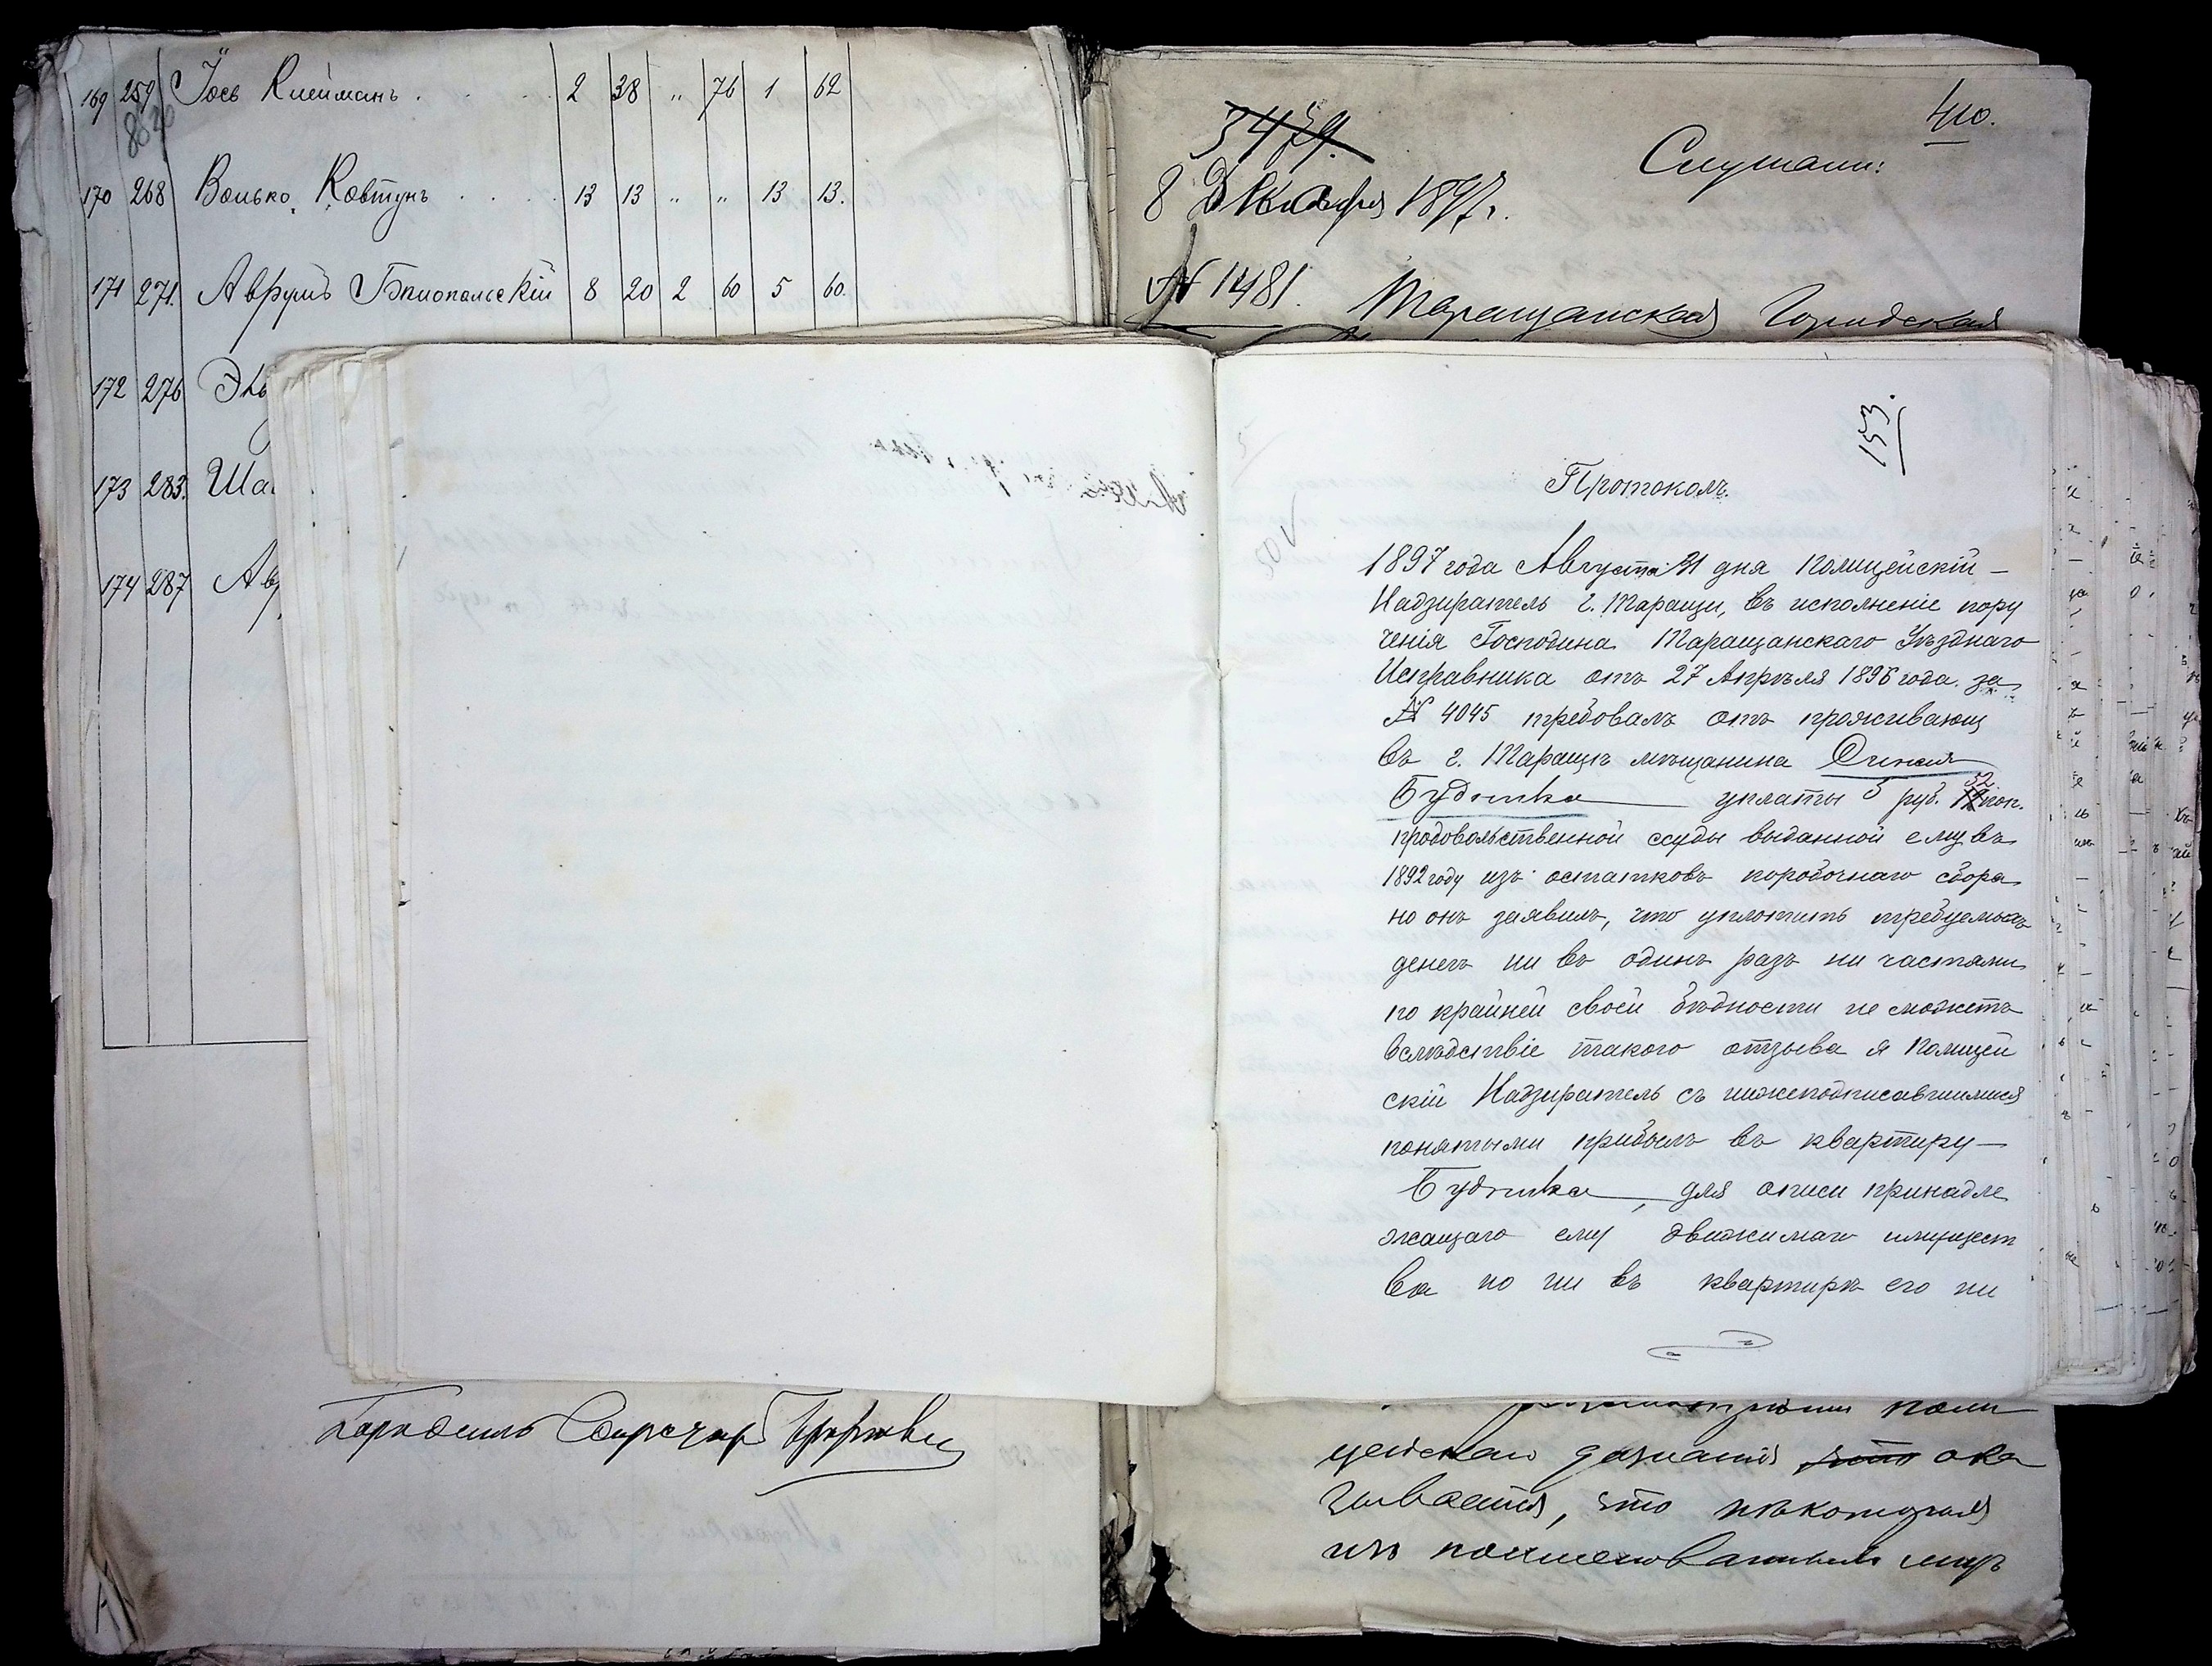 169 259 Іось Клейманъ . . . 2 38 " 76 1 62
8820
170 268 Волько Ковтунъ . . . 13 13 " " 13 13.
171 271. Аврумъ Бялопольскій 8 20 2 60 5 60.
172 276
173 283. Ша
174 287 Ав
410.
Слушали:
8 Декабря 1897 г.
№ 1481. Таращанская Городская
153.
Протоколъ.
1897 года Августа 21 дня Полицейскій —
Надзиратель г. Таращи, въ исполненіе пору
ченія Господина Таращанскаго Уѣзднаго
Исправника отъ 27 Апрѣля 1896 года за
№ 4045 требовалъ отъ проживающ
въ г. Таращѣ мѣщанина
уплаты 5 руб. 32 коп.
продовольственной ссуды выданной ему въ
1892 году изъ остатковъ коробочнаго сбора
но онъ заявилъ, что уплатить требуемыхъ
денегъ ни въ одинъ разъ ни частями
по крайней своей бѣдности не можетъ
вслѣдствіе такого отзыва я Полицей
скій Надзиратель съ нижеподписавшимися
понятыми прибылъ въ квартиру —
для описи принадле
жащаго ему движимаго имущест
ва но ни въ квартирѣ его ни
поли
цейскаго дознанія что ока
зывается, что нѣкоторыя
изъ поименованныхъ лицъ